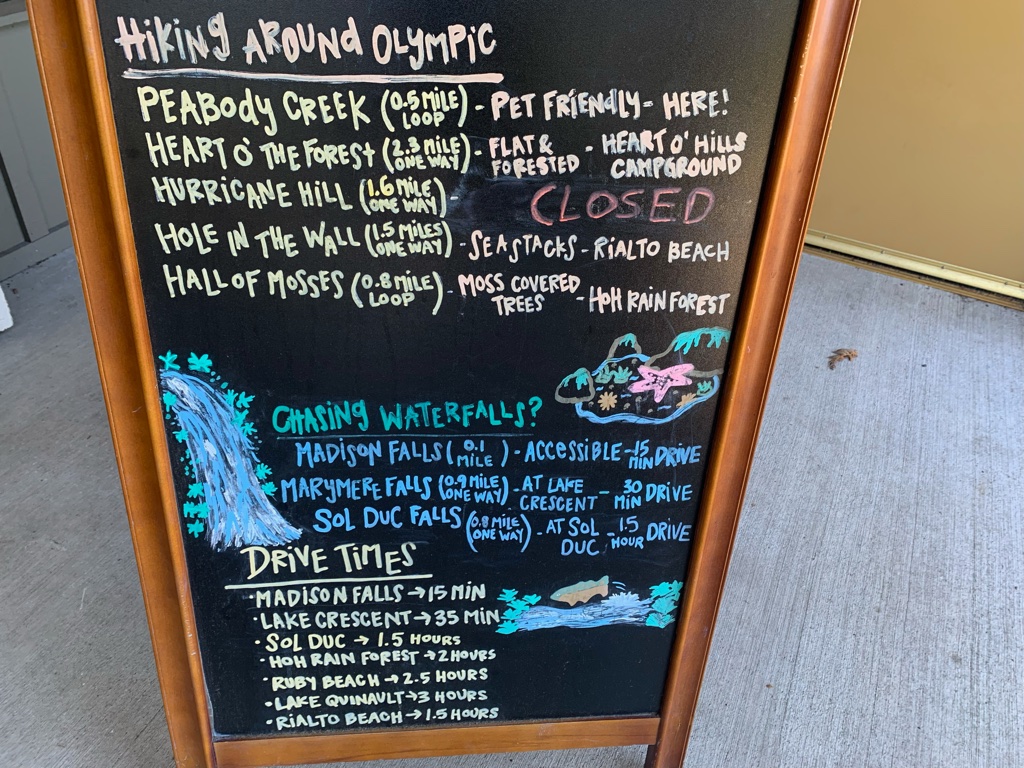 HIKING AROUND OLYMPIC
PEABODY CREEK (0.5 MILE LOOP) - PET FRIENDLY - HERE!
HEART O' THE FOREST (2.3 MILE ONE WAY) - FLAT & FORESTED - HEART O' HILLS CAMPGROUND
HURRICANE HILL (1.6 MILE ONE WAY) - CLOSED
HOLE IN THE WALL (1.5 MILES ONE WAY) - SEASTACKS - RIALTO BEACH
HALL OF MOSSES (0.8 MILE LOOP) - MOSS COVERED TREES - HOH RAIN FOREST
CHASING WATERFALLS?
MADISON FALLS (0.1 MILE) - ACCESSIBLE - 15 MIN DRIVE
MARYMERE FALLS (0.9 MILE ONE WAY) - AT LAKE CRESCENT - 30 MIN DRIVE
SOL DUC FALLS (0.8 MILE ONE WAY) - AT SOL DUC - 1.5 HOUR DRIVE
DRIVE TIMES
• MADISON FALLS → 15 MIN
• LAKE CRESCENT → 35 MIN
• SOL DUC → 1.5 HOURS
• HOH RAIN FOREST → 2 HOURS
• RUBY BEACH → 2.5 HOURS
• LAKE QUINAULT → 3 HOURS
• RIALTO BEACH → 1.5 HOURS